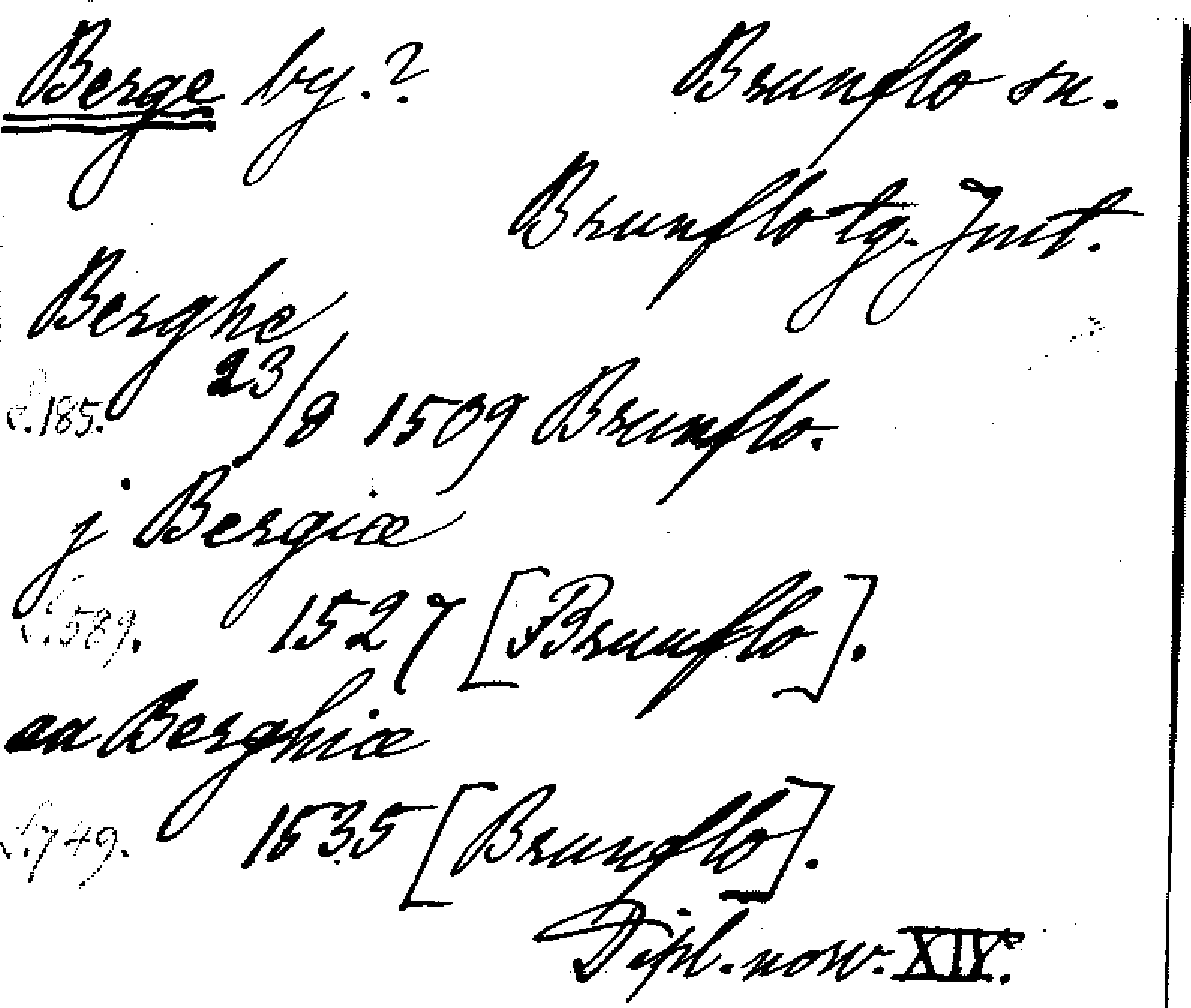 Berge by.? Brunflo sn.
Brunflo tg. Jmt.
Berghe
s. 185. 23/8 1509 Brunflo.
j Bergiæ
s. 589. 1527 [Brunflo].
aa Berghiæ
s. 749. 1535 [Brunflo].
Dipl. norv. XIV.